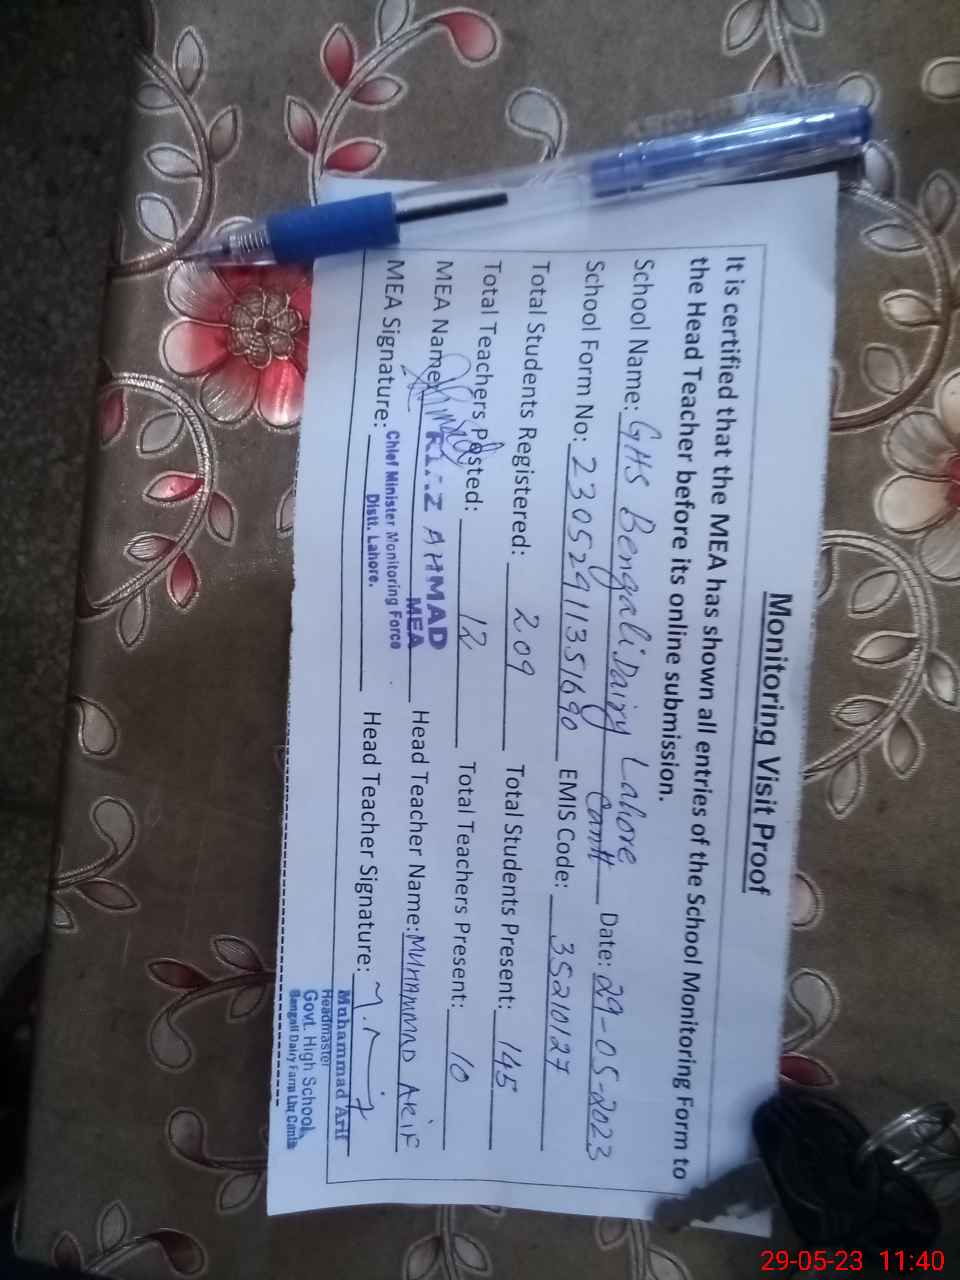 Monitoring Visit Proof
It is certified that the MEA has shown all entries of the School Monitoring Form to
the Head Teacher before its online submission.
School Name: GHS Bengali Dairy Lahore Cantt Date: 29-05-2023
School Form No: 23052911351690 EMIS Code: 35210127
Total Students Registered: 209 Total Students Present: 145
Total Teachers Posted: 12 Total Teachers Present: 10
MEA Name: AHMAD Head Teacher Name: MUHAMMAD ARIF
MEA
MEA Signature: Chief Minister Monitoring Force Head Teacher Signature:
Distt. Lahore.
Muhammad Arif
Headmaster
Govt. High School,
Bengali Dairy Farm Lhr Cantt
29-05-23 11:40